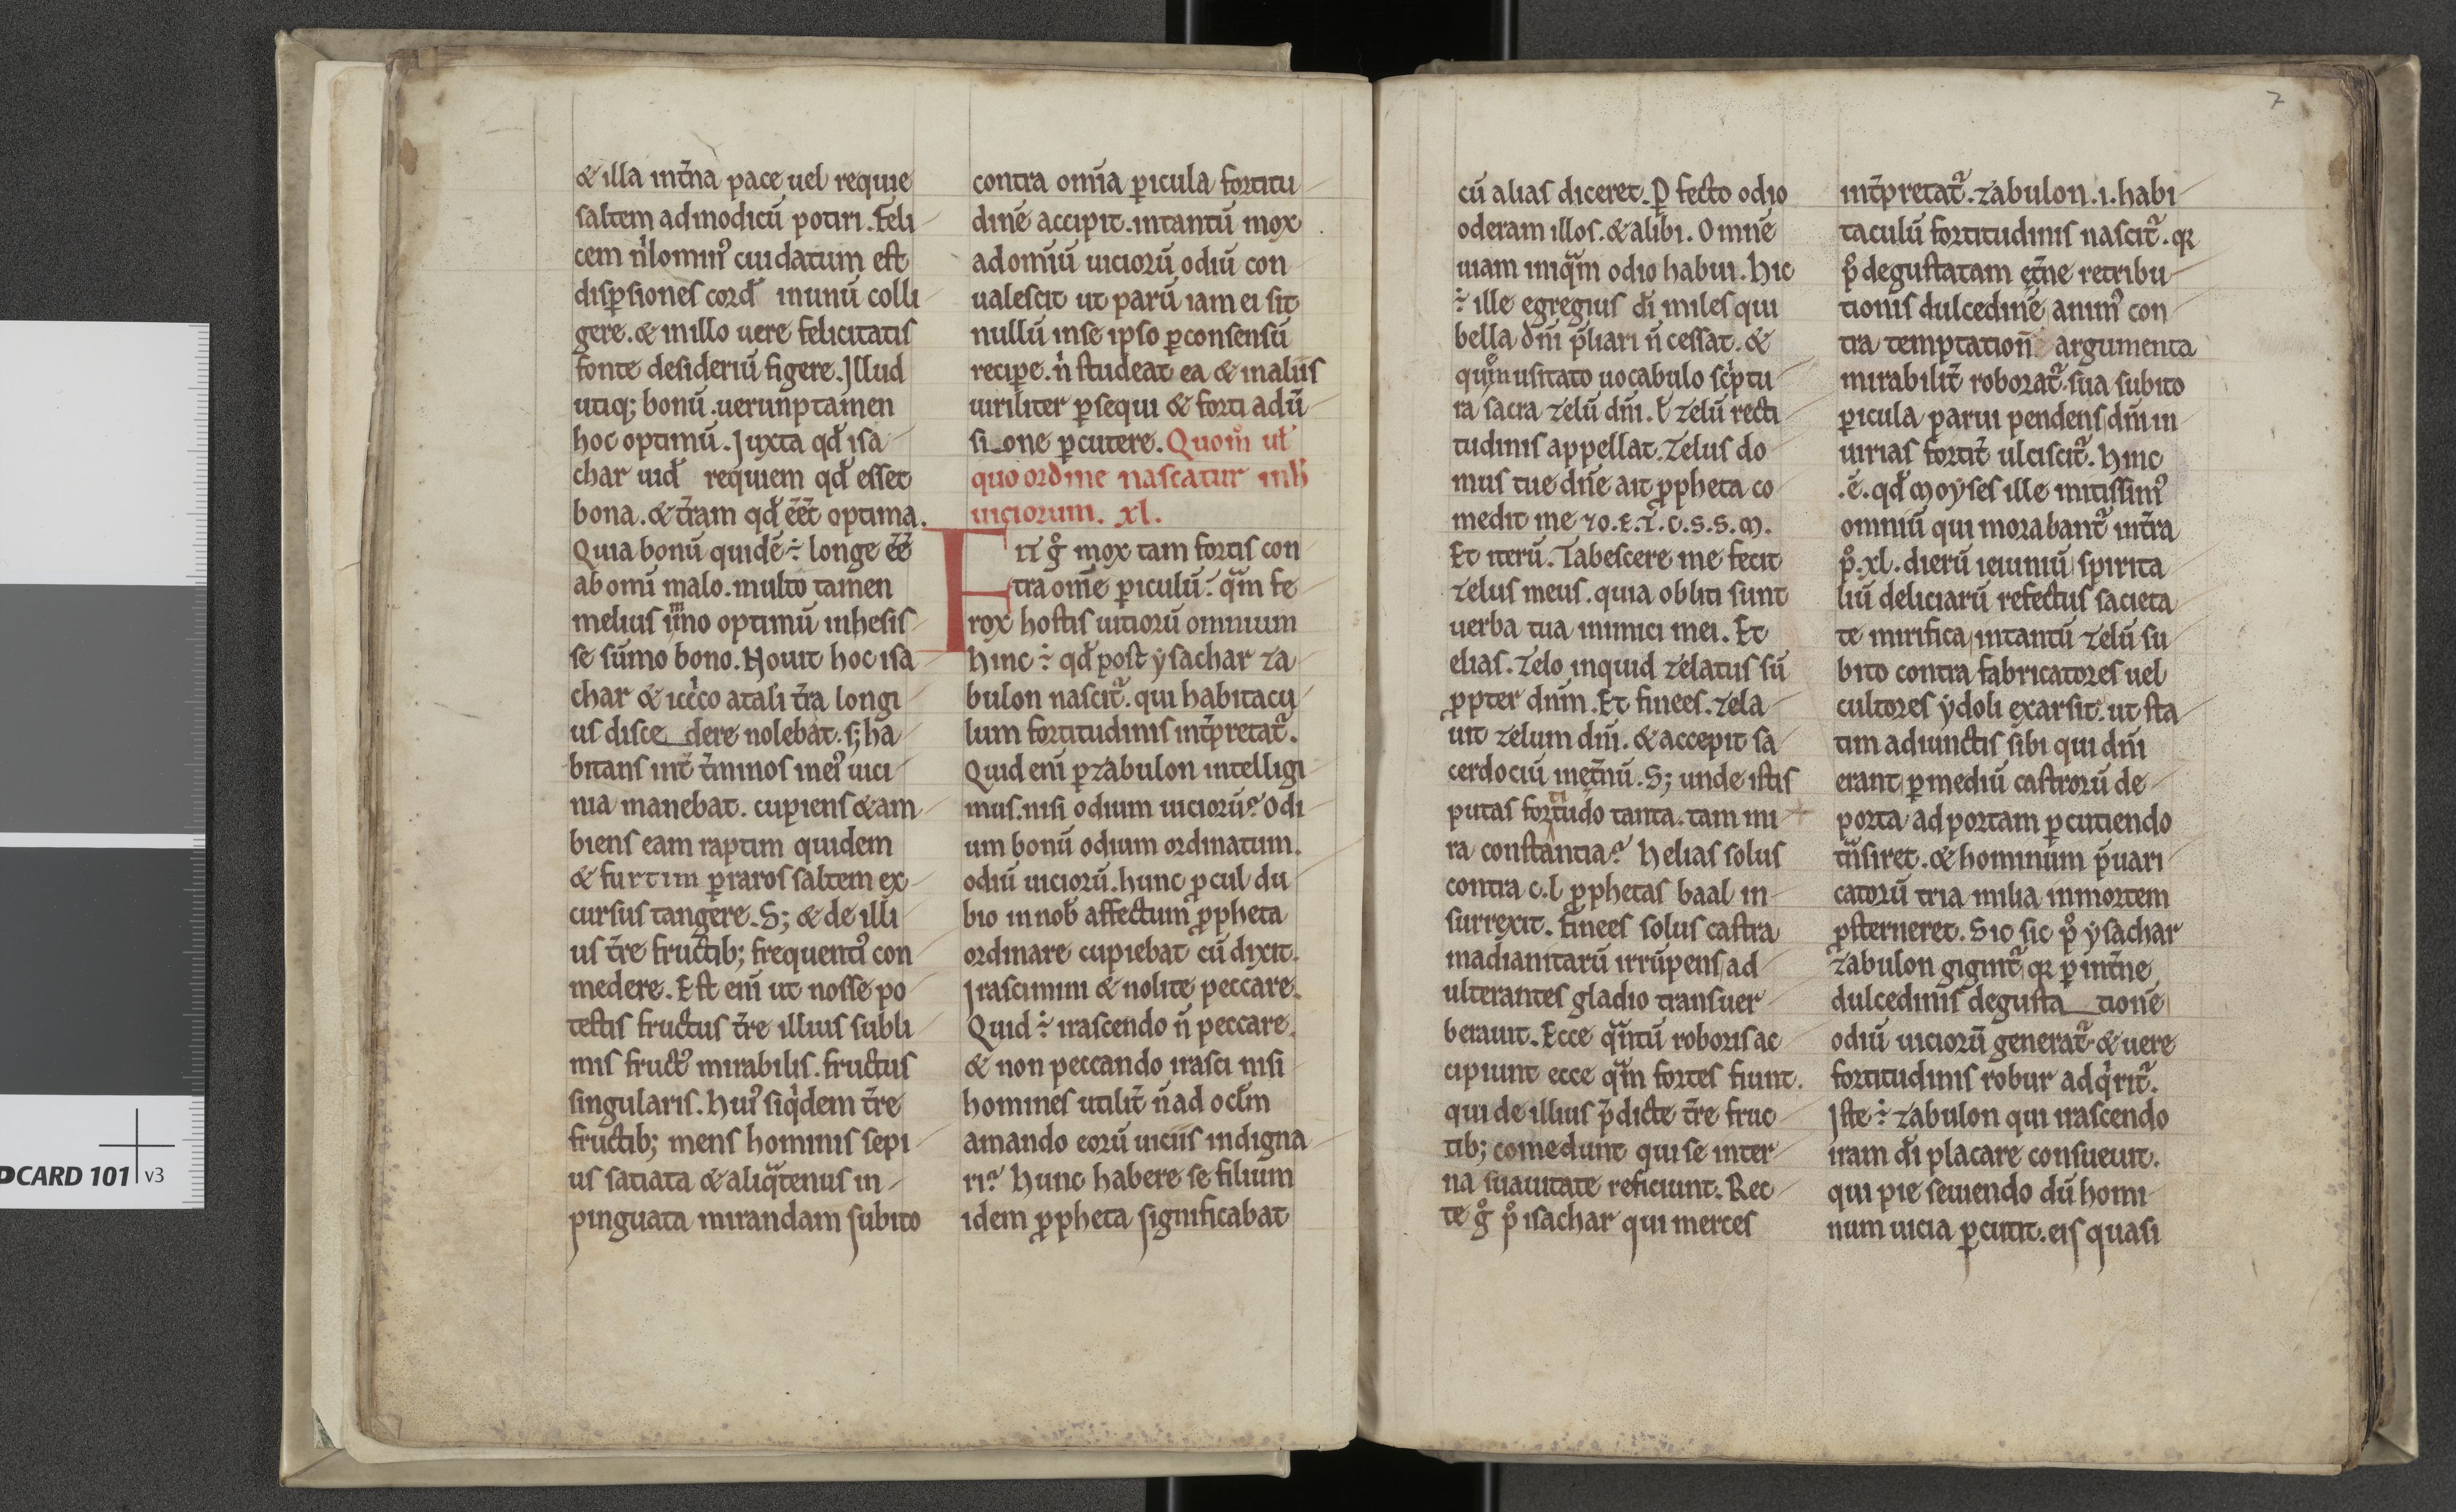 & illa int̄na pace uel requie
saltem ad modicū potiri. feli
cem n̉lomin᷒ cui datum est
disp̱siones cord̄ in unū colli
gere. & in illo uere felicitatis
fonte desideriū figere. Illud
utiq; bonū. uerūnptamen
hoc optimū. Juxta qd̄ isa
char uid̄ requiem qd̄ esset
bona. & t̄ram qd̄ e͞e͞t optima.
Quia bonū quidē ÷ longe e͞e
ab omī malo. multo tamen
melius īmo optimū inhesis
se sūmo bono. Nouit hoc isa
char & icc̉co a tali t̄ra longi
us disce dere nolebat. s; ha
bitans int̄ t̄minos in ei᷒ uici
nia manebat. cupiens & am
biens eam raptim quidem
& furtim p̱ raros saltem ex
cursus tangere. S; & de illi
us t̄re fructib; frequenti᷒ con
medere. Est enī ut nosse po
testis fructus t̄re illius subli
mis fruct᷒ mirabilis. fructus
singularis. Hui᷒ siq̉dem t̄re
fructib; mens hominis sepi
us satiata & aliq̄tenus in
pinguata mirandam subito
contra om̄ia p̱icula fortitu
dinē accipit. in tantū mox
ad omīū uiciorū odiū con
ualescit ut parū iam ei sit
nullū in se ipso p̱ consensū
recipe. n̉ studeat ea & in aliis
uiriliter p̱sequi & forti adū
si one p̱cutere. Quom̊ ul̄
quo ordine nascatur
uiciorum. xl.
Fit g̊ mox tam fortis con
tra om̄e p̱iculū? q̄m fe
rox hostis uitiorū omnium
hinc ÷ qd̄ post ẏsachar za
bulon nascit᷑. qui habitacu
lum fortitudinis int̄pretat᷑.
Quid enī p̱ zabulon intelligi
mus. nisi odium uiciorū? Odi
um bonū odium ordinatum.
odiū uiciorū. hunc ꝓcul du
bio in nob̄ affectum ꝓpheta
ordinare cupiebat cū dixit.
Irascimini & nolite peccare.
Quid ÷ irascendo n̄ peccare.
& non peccando irasci nisi
homines utilit̄ n̄ ad ocl̄m
amando eorū uiciis indigna
ri? hunc habere se filium
idem ꝓpheta significabat
7
cū alias diceret. P̱fecto odio
oderam illos. & alibi. Omnē
uiam iniq̄m odio habui. Hic
÷ ille egregius di̅ miles qui
bella dn̄i p̄liari n̄ cessat. &
qů inusitato uocabulo sc̉ptu
ra sacra zelū dn̄i. l̄ zelū recti
tudinis appellat. Zelus do
mus tue dn̄e ait ꝓpheta co
medit me 7 o. e. t̄. c. s. s. m.
Et iterū. Tabescere me fecit
zelus meus. quia obliti sunt
uerba tua inimici mei. Et
elias. Zelo inquid zelatus sū
ꝓpter dnm̄. Et finees. zela
uit zelum dn̄i. & accepit sa
cerdociū in et̄nū. S; unde istis
putas fortitudo tanta. tam mi
ra constantia? Helias solus
contra c.l ꝓphetas baal in
surrexit. finees solus castra
madianitarū irrūpens ad
ulterantes gladio transuer
berauit. Ecce q̄ntū roboris ac
cipiunt ecce q̄m fortes fiunt.
qui de illius p̄dicte t̄re fruc
tib; comedunt qui se inter
na suauitate reficiunt. Rec
te g̊ p᷒ isachar qui merces
int̄pretat᷑. zabulon .i. habi
taculū fortitudinis nascit᷑. qꝛ
p᷒ degustatam et̄ne retribu
tionis dulcedinē anim᷒ con
tra temptation̄ argumenta
mirabilit̄ roborat᷑. sua subito
p̱icula parui pendens dn̄i in
iurias fortit̄ ulciscit᷑. Hinc
.ē. qd̄ moẏses ille mitissim᷒
omniū qui morabant᷑ in t̄ra
p᷒ .xl. dierū ieiuniū spirita
liū deliciarū refectus sacieta
te mirifica in tantū zelū su
bito contra fabricatores uel
cultores ẏdoli exarsit. ut sta
tim adiunctis sibi qui dn̄i
erant p̱ mediū castrorū de
porta ad portam p̱cutiendo
t̄nsiret. & hominum p̄uari
catorū tria milia in mortem
ꝓsterneret. Sic sic p᷒ ẏsachar
zabulon gignit᷑ qꝛ p̱ int̄ne
dulcedinis degusta tionē
odiū uiciorū generat᷑ & uere
fortitudinis robur adq̉rit᷑.
Iste ÷ zabulon qui irascendo
iram di̅ placare consueuit.
qui pie seuiendo dū homi
num uicia p̱cutit. eis quasi
DCARD 101 v3